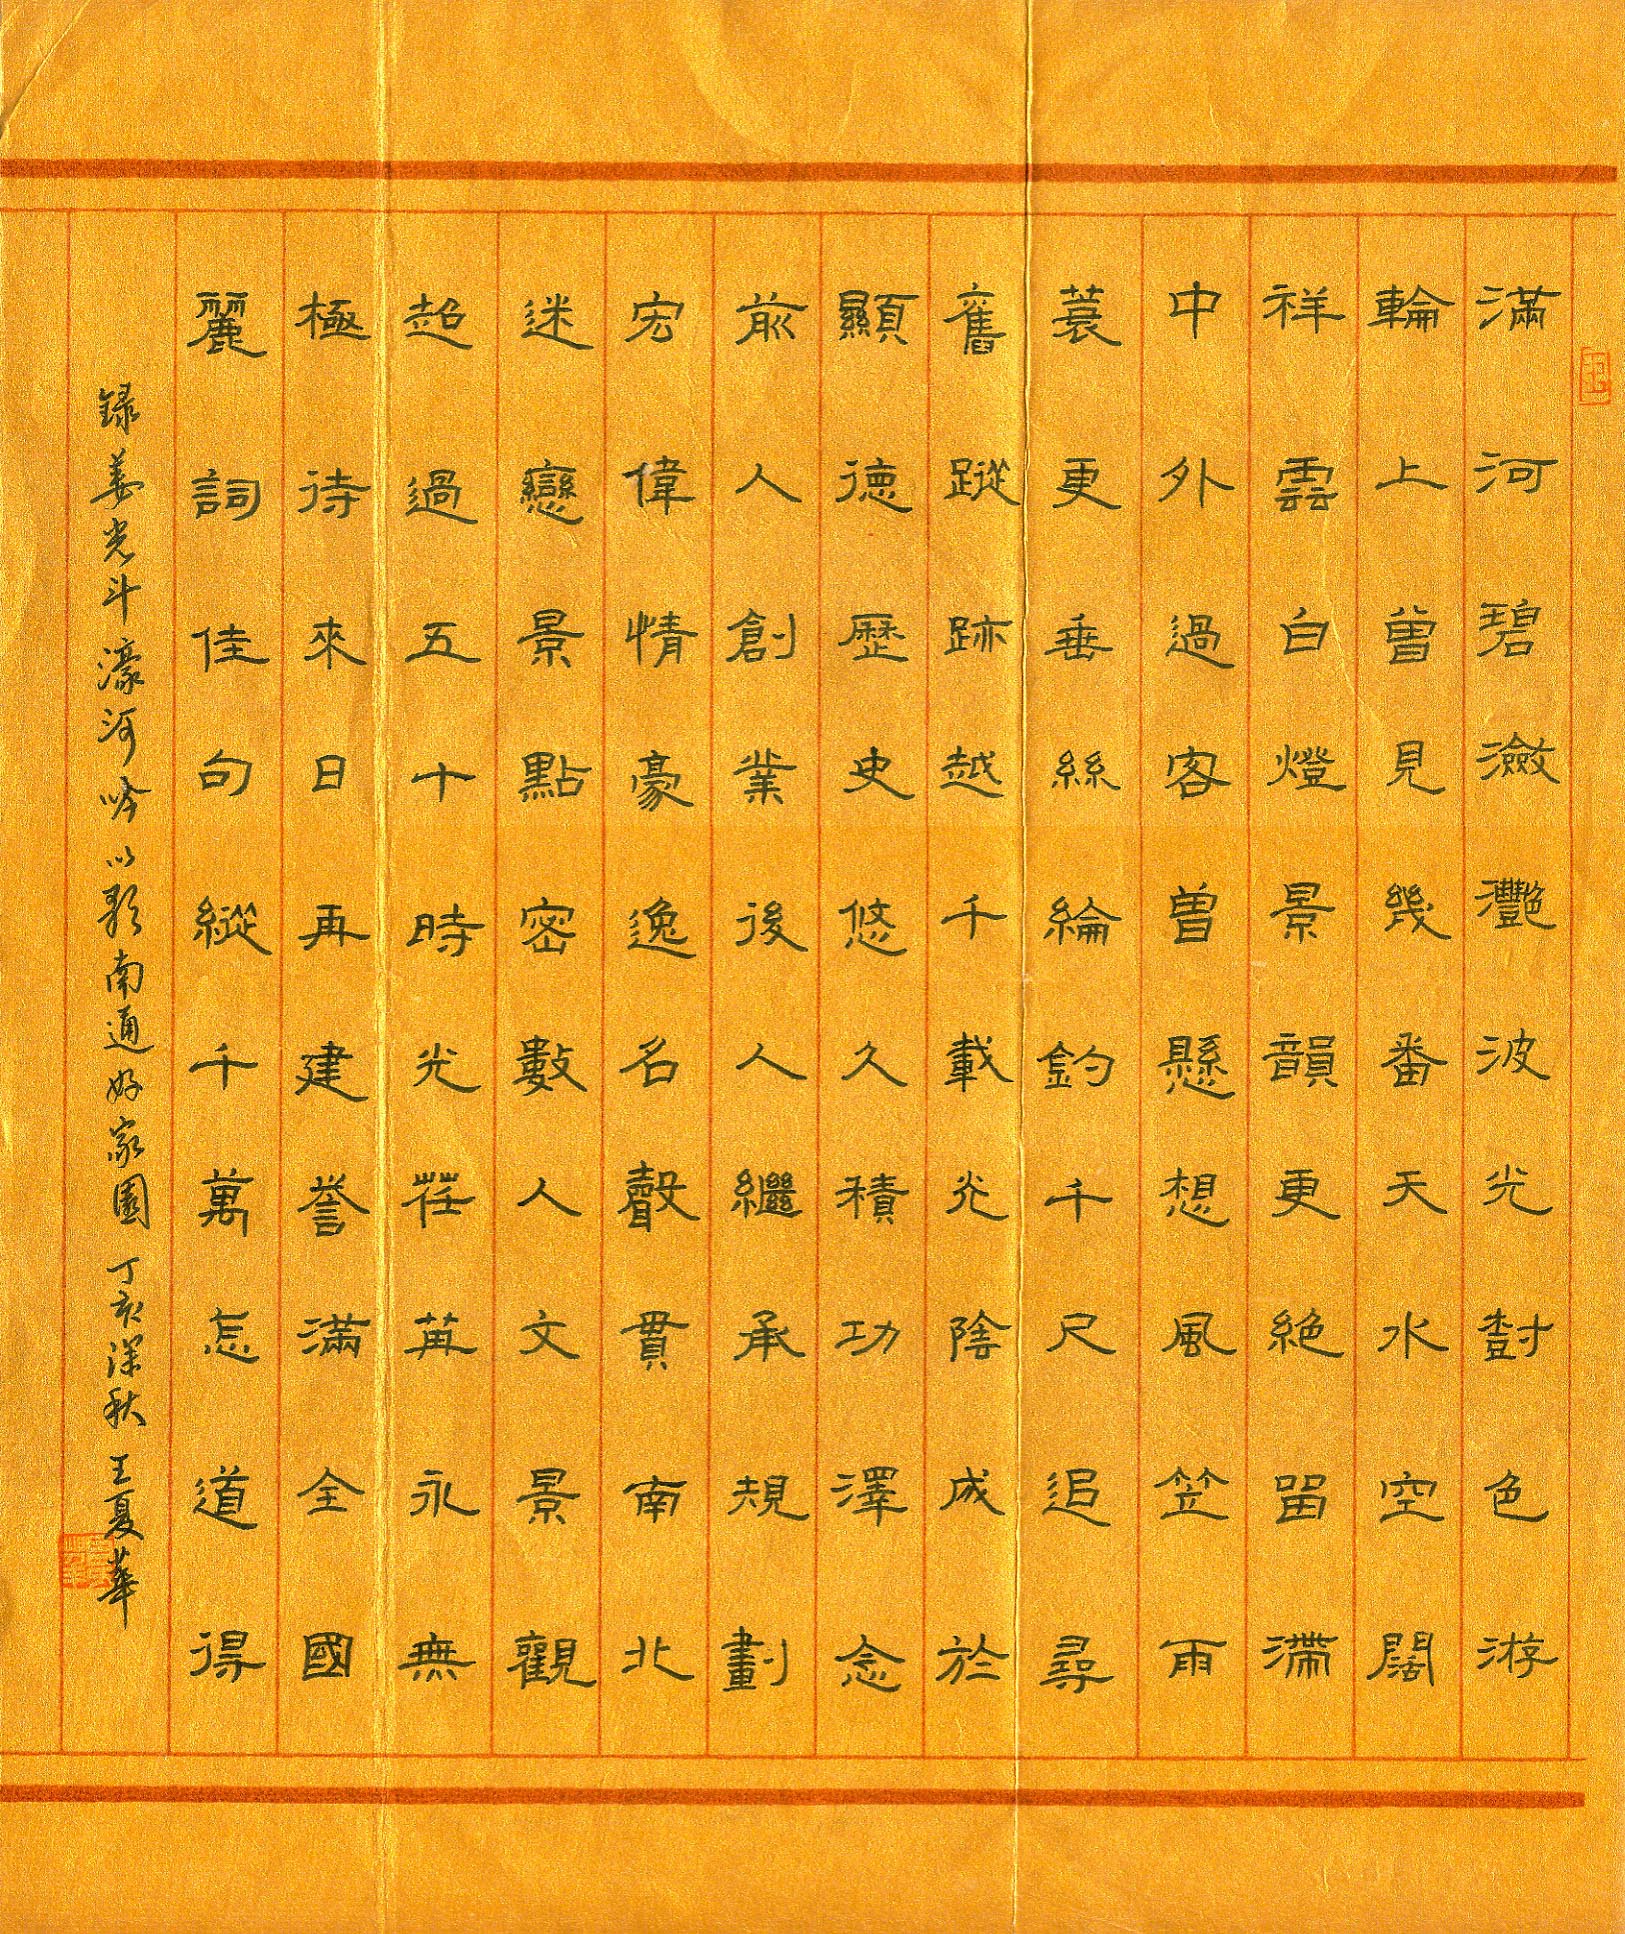 滿河碧瀲灩波光樹色游
輪上曾見幾番天水空闊
祥雲白燈景韻更絶留滯
中外過客曾懸想風笠雨
蓑更垂絲綸釣千尺追尋
舊蹤跡越千載光陰成於
顯德歷史悠久積功澤念
前人創業後人繼承規劃
宏偉情豪逸名聲貫南北
迷戀景點密數人文景觀
超過五十時光荏苒永無
極待來日再建譽滿全國
麗詞佳句縱千萬怎道得
録姜光斗濠河吟以歌南通好家園 丁亥深秋 王夏華